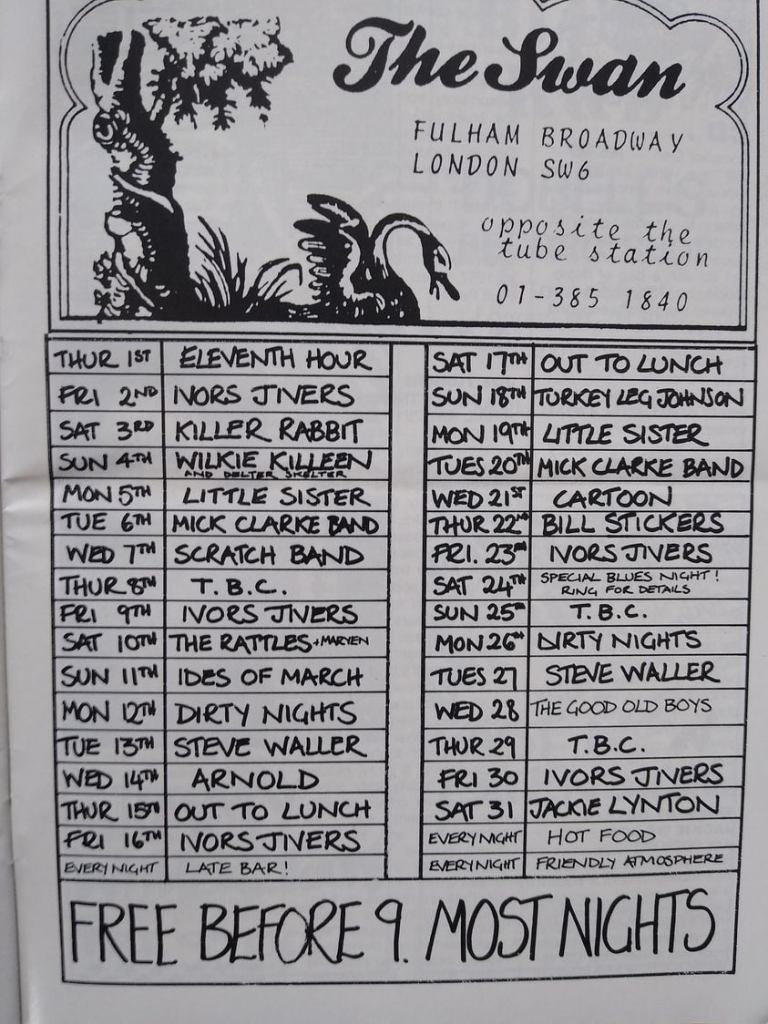 The Swan
FULHAM BROADWAY
LONDON SW6
opposite the
tube station
01-385 1840
THUR 1ST ELEVENTH HOUR
FRI 2ND IVORS JIVERS
SAT 3RD KILLER RABBIT
SUN 4TH WILKIE KILLEEN
AND DELTER SKELTER
MON 5TH LITTLE SISTER
TUE 6TH MICK CLARKE BAND
WED 7TH SCRATCH BAND
THUR 8TH T.B.C.
FRI 9TH IVORS JIVERS
SAT 10TH THE RATTLES + MARYEN
SUN 11TH IDES OF MARCH
MON 12TH DIRTY NIGHTS
TUE 13TH STEVE WALLER
WED 14TH ARNOLD
THUR 15TH OUT TO LUNCH
FRI 16TH IVORS JIVERS
EVERY NIGHT LATE BAR!
SAT 17TH OUT TO LUNCH
SUN 18TH TURKEY LEG JOHNSON
MON 19TH LITTLE SISTER
TUES 20TH MICK CLARKE BAND
WED 21ST CARTOON
THUR 22ND BILL STICKERS
FRI. 23RD IVORS JIVERS
SAT 24TH SPECIAL BLUES NIGHT!
RING FOR DETAILS
SUN 25TH T.B.C.
MON 26TH DIRTY NIGHTS
TUES 27 STEVE WALLER
WED 28 THE GOOD OLD BOYS
THUR 29 T.B.C.
FRI 30 IVORS JIVERS
SAT 31 JACKIE LYNTON
EVERY NIGHT HOT FOOD
EVERY NIGHT FRIENDLY ATMOSPHERE
FREE BEFORE 9. MOST NIGHTS